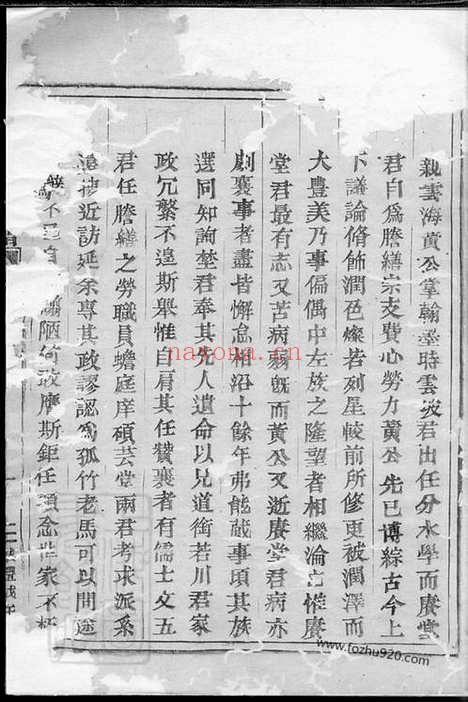 親雲海黃公掌翰墨時雲坡君出任分水學而賡堂
君自爲謄繕宗支費心勞力黃公先已博綜古今上
下議論脩飾潤色燦若列星較前所修更被潤澤而
大豐美乃事偏偶中左族之隆望者相繼淪亡惟賡
堂君最有志又苦病癆旣而黃公又逝賡堂君病亦
劇襄事者盡皆懈怠相沿十餘年弗能蕆事頃其族
選同知詢埜君奉其先人遺命以兄道銜若川君家
政冗繁不遑斯舉惟自肩其任贊襄者有儒士文五
君任謄繕之勞職員蟾庭庠碩芸堂兩君考求派系
遠捜近訪延余專其政謬認爲孤竹老馬可以問途
不 陋倚敭摩斯鉅任須念世家不
nayona.cn
www.fozhu920.com